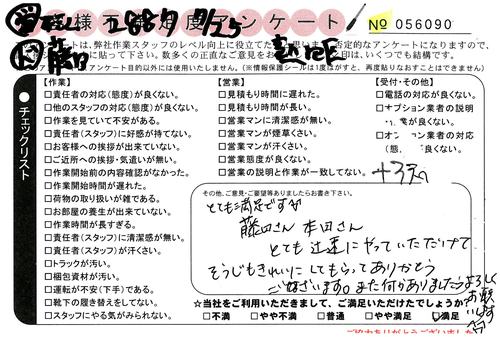 お客様満足度アンケート
№ 056090
ートは、弊社作業スタッフのレベル向上に役立てた
否定的なアンケートになりますので、
に貼って下さい。数多くの正直なご意見をお
印は、いくつでも結構です。
アンケート目的以外には使用いたしません。(※情報保護シールは1度はがすと、再度貼りなおすことはできません)
チェックリスト
【作業】
□責任者の対応(態度)が良くない。
□他のスタッフの対応(態度)が良くない。
□作業を見ていて不安がある。
□責任者(スタッフ)に好感が持てない。
□お客様への挨拶が出来ていない。
□ご近所への挨拶・気遣いが無い。
□作業開始前の内容確認がなかった。
□作業開始時間が遅れた。
□荷物の取り扱いが雑である。
□お部屋の養生が出来ていない。
□作業時間が長すぎる。
□責任者(スタッフ)に清潔感が無い。
□責任者(スタッフ)が汗くさい。
□トラックが汚い。
□梱包資材が汚い。
□運転が不安(下手)である。
□靴下の履き替えをしてない。
□スタッフにやる気がみられない。
【営業】
□見積もり時間に遅れた。
□見積もり時間が長い。
□営業マンに清潔感が無い。
□営業マンが煙草くさい。
□営業マンが汗くさい。
□営業態度が良くない。
□営業の説明と作業が一致してない。
【受付・その他】
□電話の対応が良くない。
□オプション業者の説明
が良くない。
□オプション業者の対応
(態 良くない。
その他、ご意見・ご要望等ありましたらお書き下さい。
とても満足です
藤田さん 本田さん
とても迅速にやっていただけて
そうじもきれいにしてもらってありがとう
ございます。また何かありましたらよろしく
お願いします
☆当社をご利用いただきまして、ご満足いただけたでしょうか?
□不満 □やや不満 □普通 □やや満足 □満足
ご協力ありがとうございました